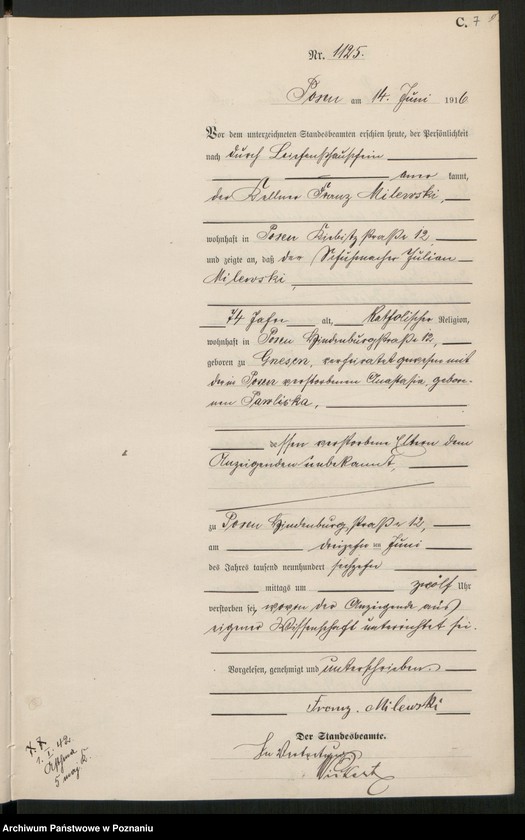 C. 7
Nr. 1125.
Posen am 14. Juni 1916
Vor dem unterzeichneten Standesbeamten erschien heute, der Persönlichkeit
nach durch Leichenschauschein
kannt,
der Kellner Franz Milewski,
wohnhaft in Posen Kiebitzstraße 12
und zeigte an, daß der Schuhmacher Julian
Milewski
74 Jahre alt, katholischer Religion,
wohnhaft in Posen Hindenburgstraße 12,
geboren zu Gnesen, verheiratet gewesen mit
der in Posen verstorbenen Anastasia, gebore-
nen Pawlicka,
essen verstorbene Eltern dem
Anzeigenden unbekannt,
zu Posen Hindenburgstraße 12,
am dreizehn ten Juni
des Jahres tausend neunhundert sechzehn
mittags um zwölf Uhr
verstorben sei, wovon der Anzeigende aus
eigener Wissenschaft unterrichtet sei.
Vorgelesen, genehmigt und unterschrieben.
Franz Milewski
Der Standesbeamte.
In Vertretung
1. I. 42.
Archiwum Państwowe w Poznaniu